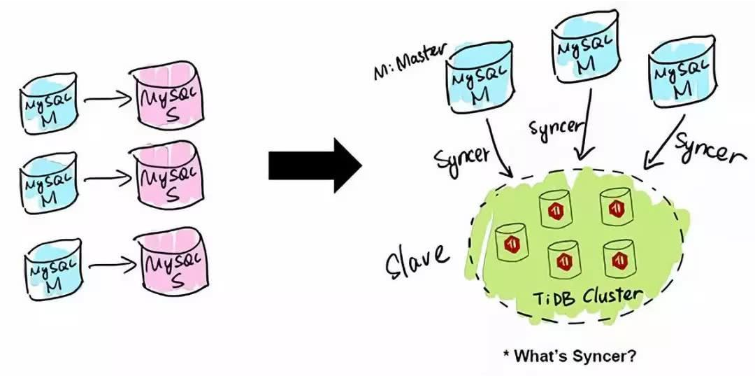 MySQL
M
MySQL
S
MySQL
M
MySQL
S
MySQL
M
MySQL
S
M: Master
MySQL
M
MySQL
M
MySQL
M
Syncer
Syncer
Syncer
Slave
TiDB Cluster
* What's Syncer?